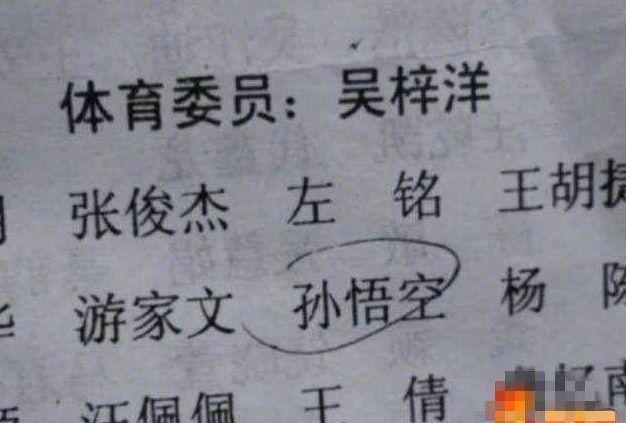 体育委员：吴梓洋
张俊杰 左铭 王胡捷
游家文 孙悟空 杨 陈
汪佩佩 王倩